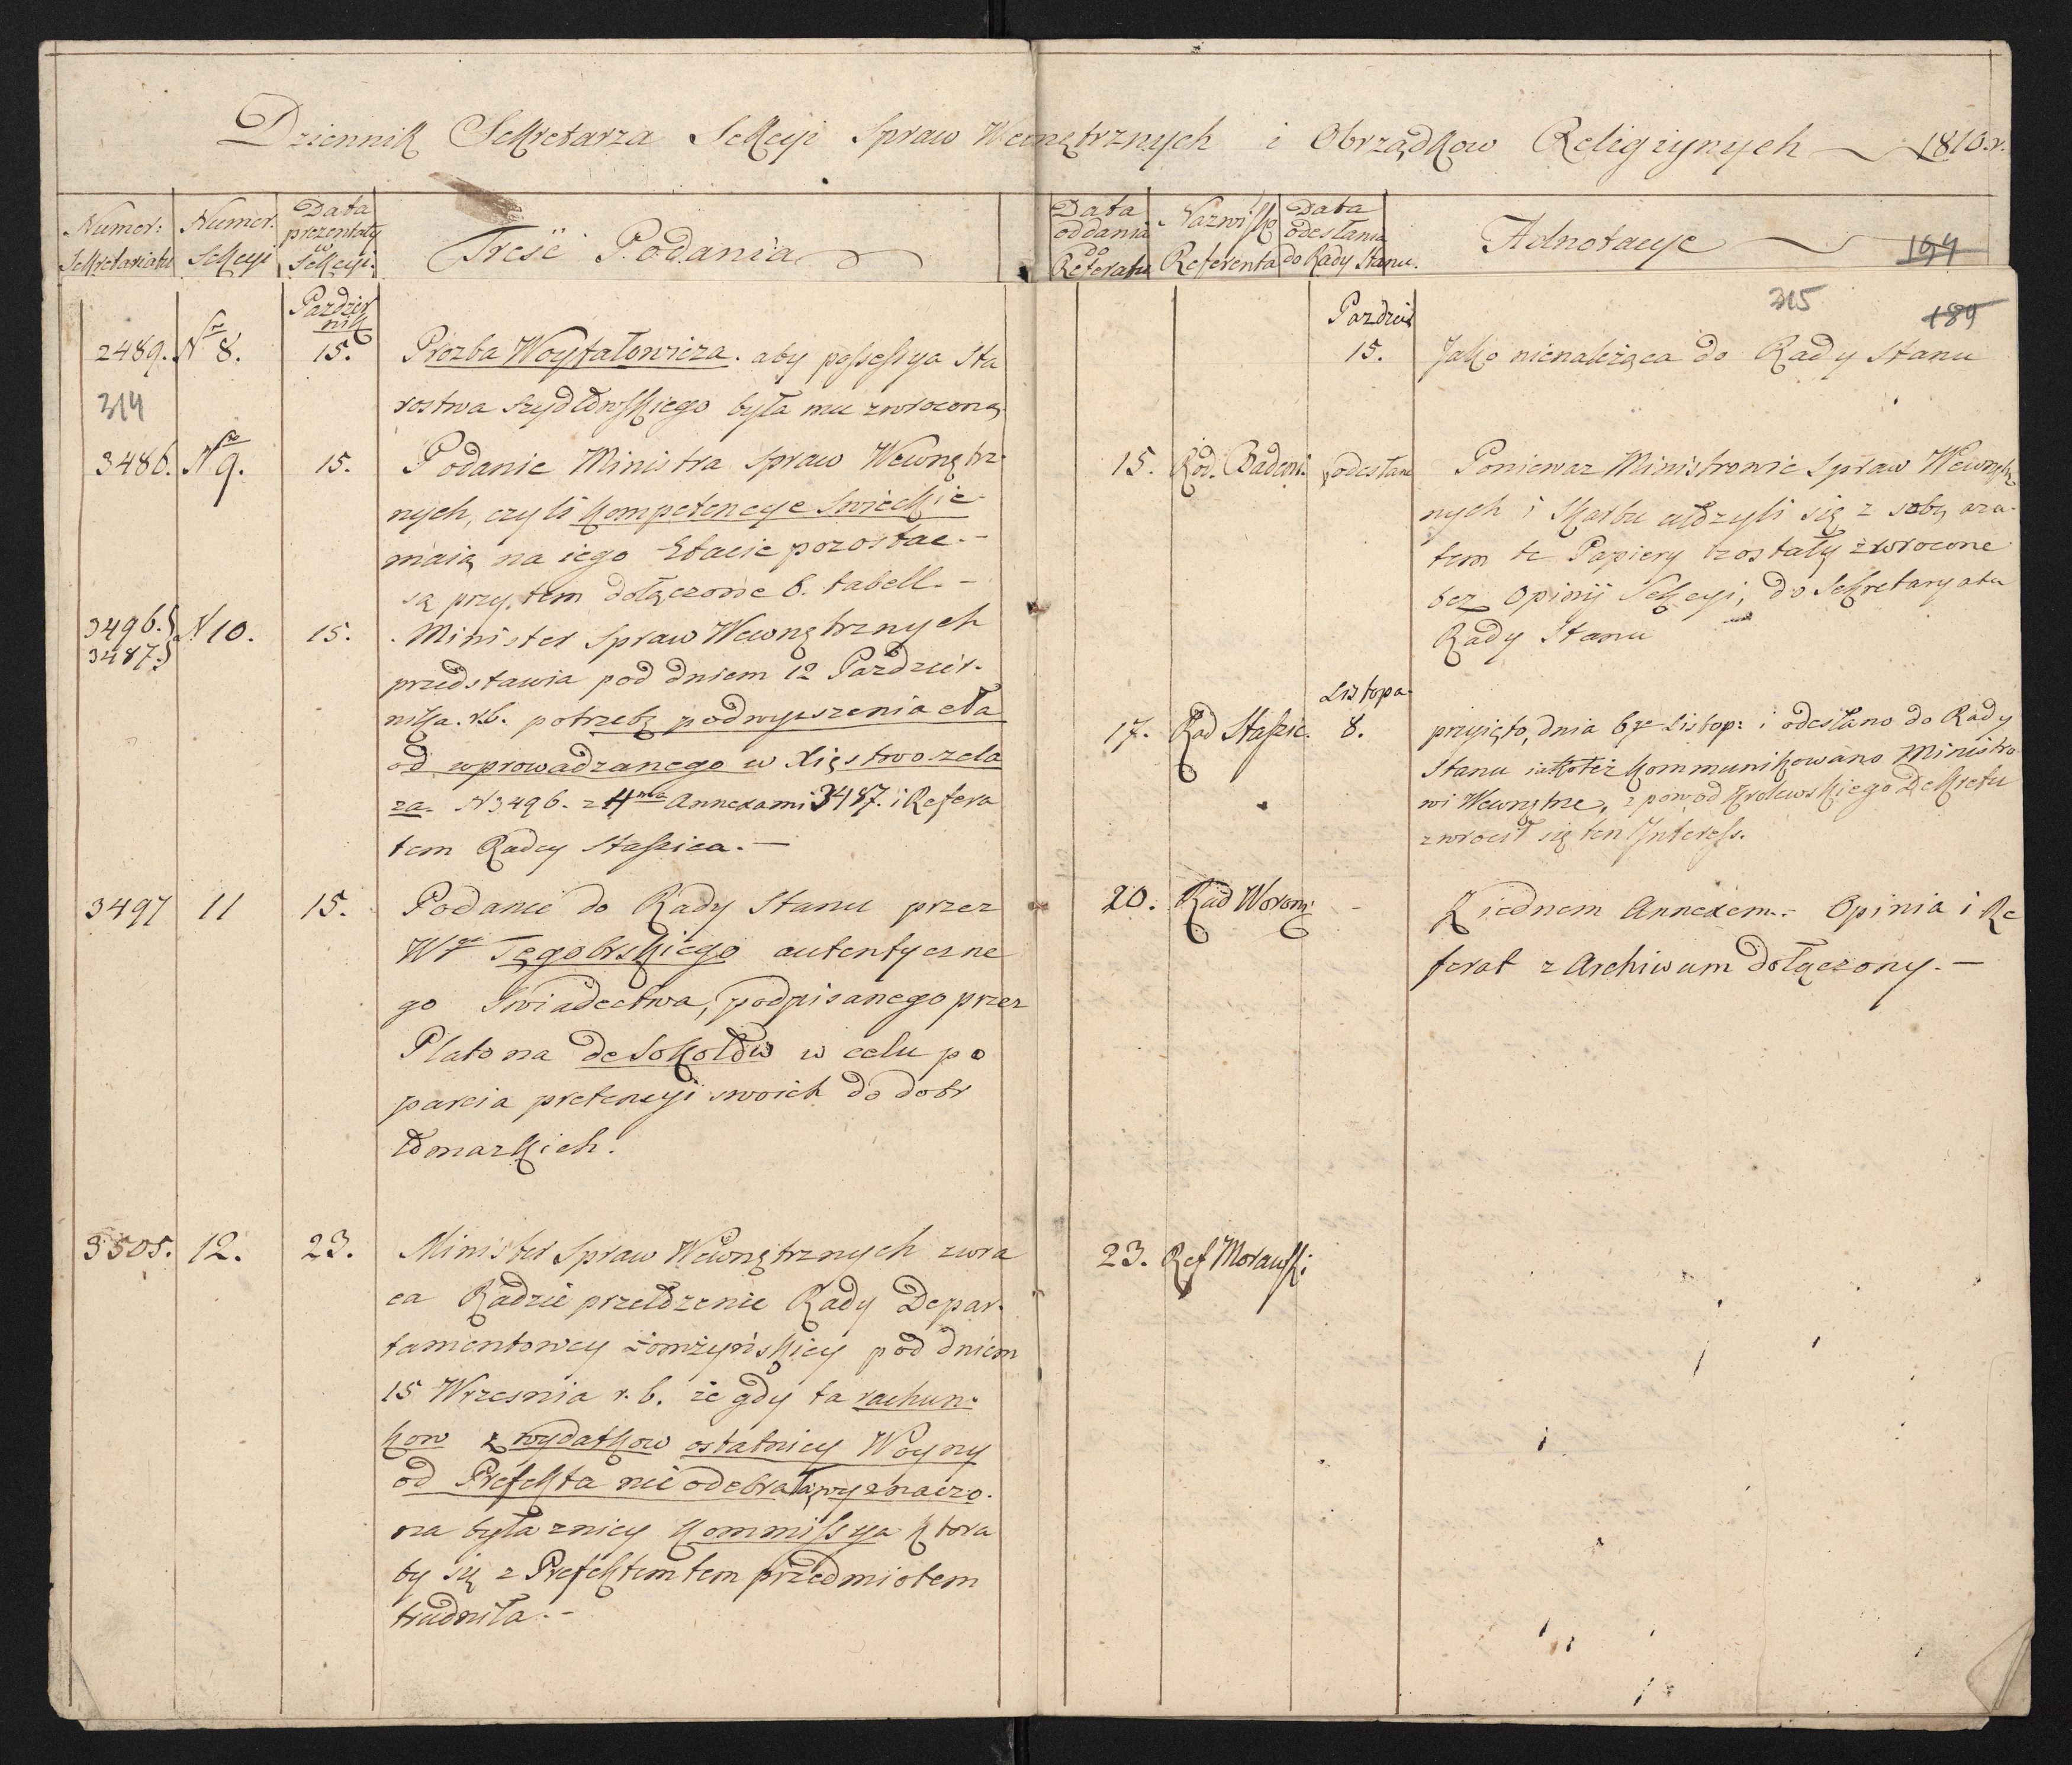 Dziennik Sekretarza Sekcyi Spraw Wewnętrznych i Obrządkow Religiynych 1810. r.
Numer: Sekretariatu
Numer. Sekcyi
Data prezentaty w Sekcyi.
Treść Podania
Data oddania do Referatu
Nazwisko Referenta
Data odesłania do Rady Stanu.
Adnotacye
194
315
189
Paździer
nik
Paździer
2489. Nro 8. 15. Prozba Woytałowicza. aby possessya Sta
rostwa Szydłowskiego była mu zwrocona.
15. Jako nienależąca do Rady Stanu
314
3486. Nro 9. 15. Podanie Ministra Spraw Wewnętrz-
nych, czyli Kompetencye Swieckie
maią na iego Etacie pozostać.-
są przy tem dołączone 6. tabell.-
15. Rad. Badeni. odesłane Poniewaz Ministrowie Spraw Wewnętrz
nych i Skarbu ułożyli się z sobą, aza-
tem te Papiery zostały zwrocone
bez Opinij Sekcyi, do Sekretaryatu
Rady Stanu
3496.}
3487.} N 10. 15. Minister Spraw Wewnętrznych
przedstawia pod dniem 12 Paździer-
nika. r.b. potrzebę podwyzszenia cła
od wprowadzanego w Xięstwo zela
za. N 3496. z 4ma Annexami 3487. i Refera
tem Radcy Staszica.-
Listopa-
17. Rad Staszic. 8. przyięto, dnia 6go Listop: i odesłano do Rady
Stanu iakoteż kommunikowano Ministro
wi Wewnętrz, z powod Krolewskiego Dekretu
zwrocił się ten Interess.
3497 11 15. Podanie do Rady Stanu przez
Wgo Tęgobrskiego autentyczne
go Swiadectwa, podpisanego przez
Platona de Sokołow w celu po
parcia pretencyi swoich do dobr
Łomazkich.
20. Rad Woroni - Z iednem Annexem.- Opinia i Re
ferat z Archiwum dołączony.-
3505. 12. 23. Minister Spraw Wewnętrznych zwra
ca Radzie przełożenie Rady Depar-
tamentowey Łomżyńskiey pod dniem
15 Wrzesnia r. b. że gdy ta rachun-
kow z wydatkow ostatniey Woyny
od Prefekta nie odebrała, wyznaczo-
na była z niey Kommissya ktora
by się z Prefektem tem przedmiotem
trudniła.-
23. Ref Morawski